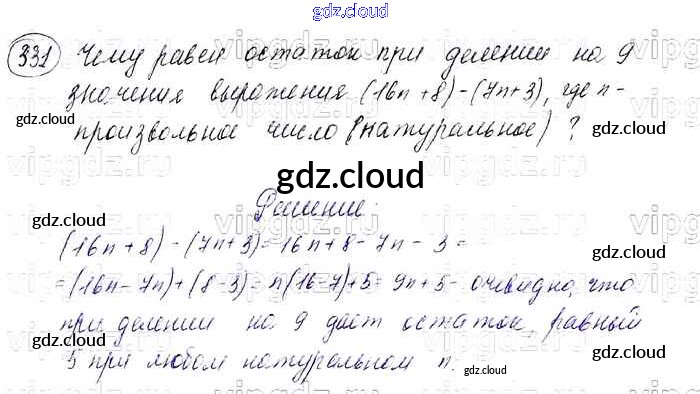 gdz.cloud
331 Чему равен остаток при делении на 9
значения выражения (16n+8)-(7n+3), где n-
gdz.cloud
gdz.cloud
произвольное число (натуральное)?
gdz.cloud
Решение:
gdz.cloud
gdz.cloud
(16n+8)-(7n+3)=16n+8-7n-3=
=(16n-7n)+(8-3)=n(16-7)+5=9n+5- очевидно, что
при делении на 9 дает остаток, равный
gdz.cloud
gdz.cloud
5 при любом натуральном n.
gdz.cloud